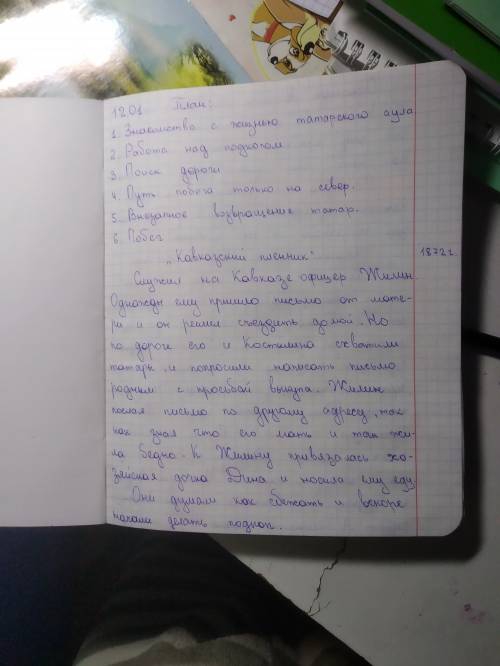 12.01 План:
1. Знакомство с жизнью татарского аула
2. Работа над подкопом
3. Поиск дороги
4. Путь побега только на север.
5. Внезапное возвращение татар.
6. Побег
„Кавказский пленник" 1872 г.
Служил на Кавказе офицер Жилин
Однажды ему пришло письмо от мате-
ри и он решил съездить домой. Но
по дороге его и Костылина схватили
татары, и попросили написать письмо
родным с просьбой выкупа. Жилин
послал письмо по другому адресу, так
как знал что его мать и так жи-
ла бедно. К Жилину привязалась хо-
зяйская дочка Дина и носила ему еду.
Они думали как сбежать и вскоре
начали делать подкоп.